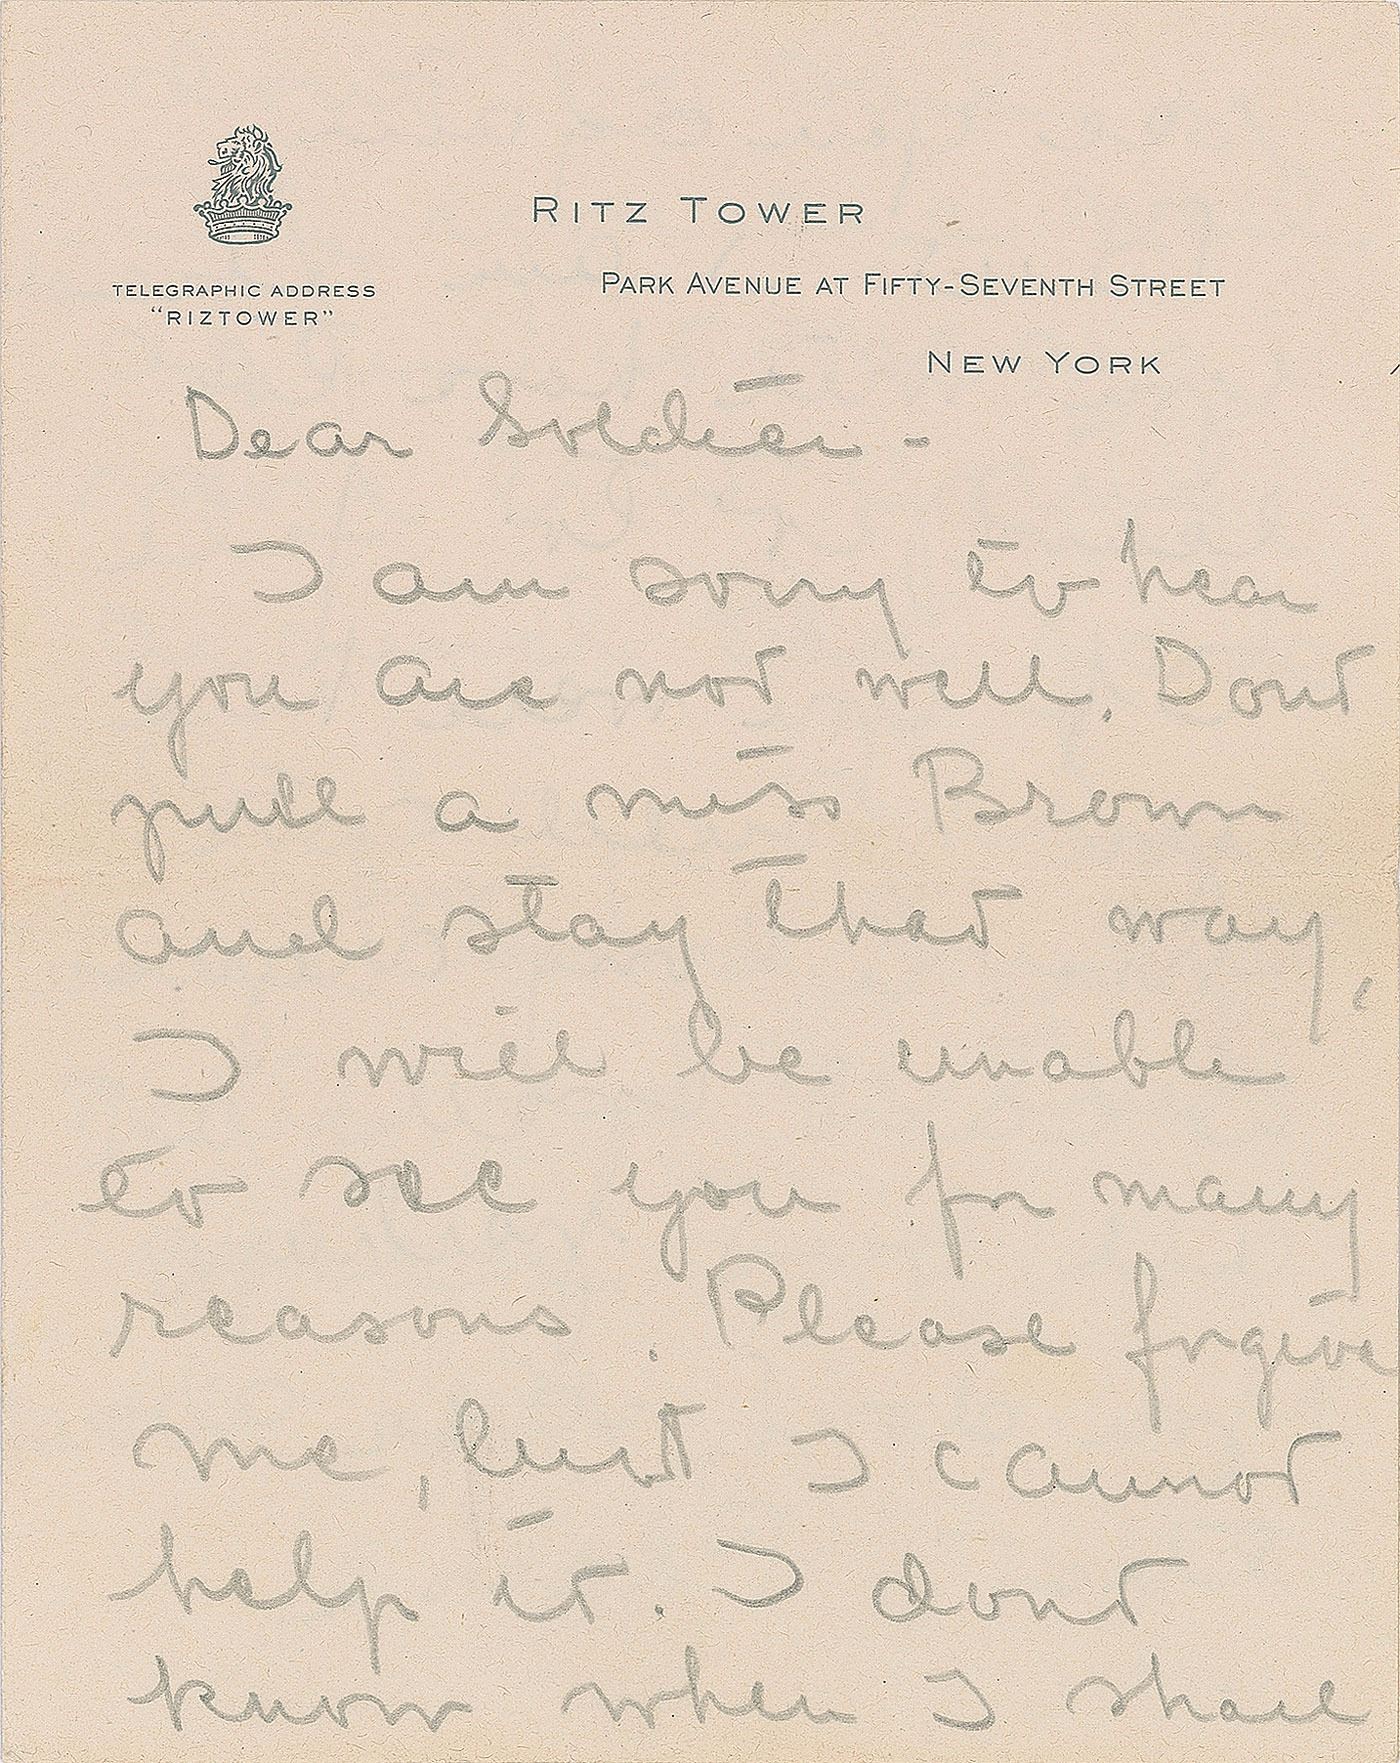 RITZ TOWER
PARK AVENUE AT FIFTY-SEVENTH STREET
NEW YORK
TELEGRAPHIC ADDRESS
"RIZTOWER"
Dear Soldier -
I am sorry to hear
you are not well. Dont
pull a miss Brown
and stay that way,
I will be unable
to see you for many
reasons. Please forgive
me, but I cannot
help it. I dont
know when I shall